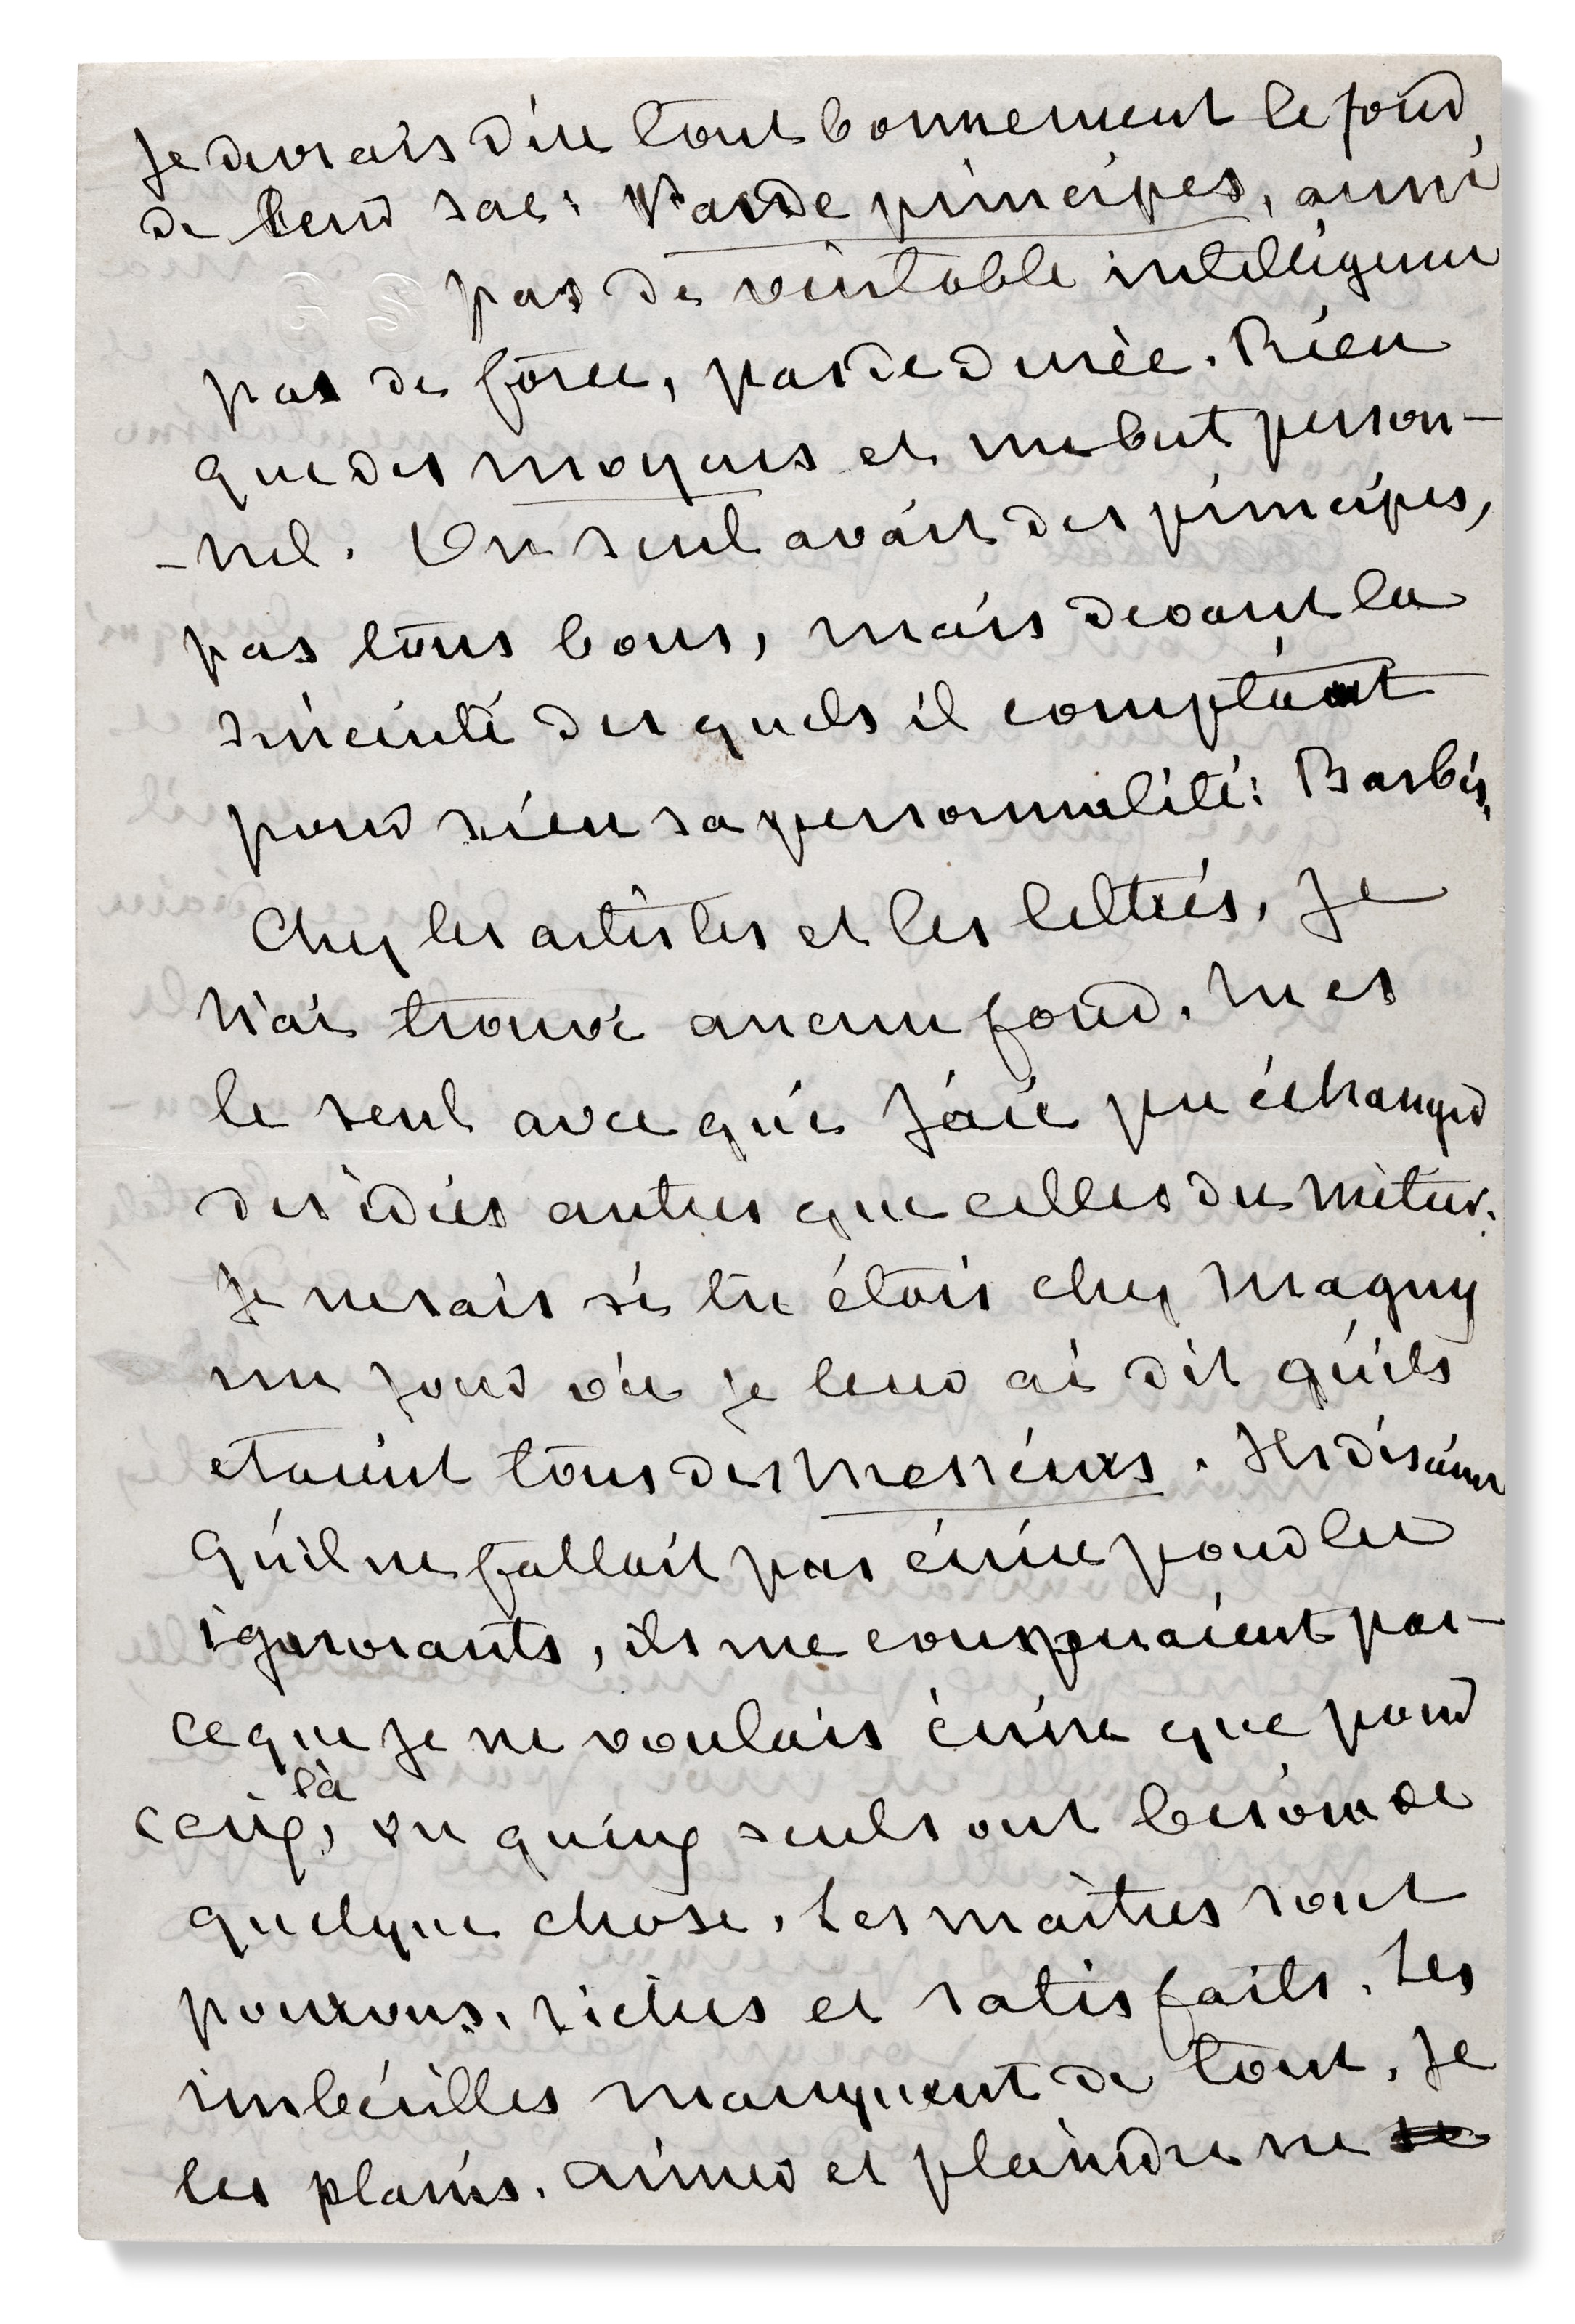 Je devrais dire tout bonnement le fond
de leur sac: Pas de principes, aussi
pas de véritable intelligence
pas de force, pas de durée. Rien
que des moyens et un but person-
-nel. Un seul avait des principes,
pas tous bons, mais devant la
sincérité desquels il comptait
pour rien sa personnalité: Barbès,
Chez les artistes et les lettrés, Je
n'ai trouvé aucun fond. tu es
le seul avec qui J'aie pu échanger
des idées autres que celles du métier.
Je ne sais si tu étois chez Magny
un jour où je leur ai dit qu'ils
etaient tous des messieurs. Ils disaient
qu'il ne fallait pas écrire pour les
ignorants, ils me conspuaient par-
ceque Je ne voulais écrire que pour
ceux là, vu qu'eux seuls ont besoin de
quelque chose. Les maîtres sont
pourvus, riches et satisfaits. Les
imbécilles manquent de tout, Je
les plains. aimer et plaindre ne se